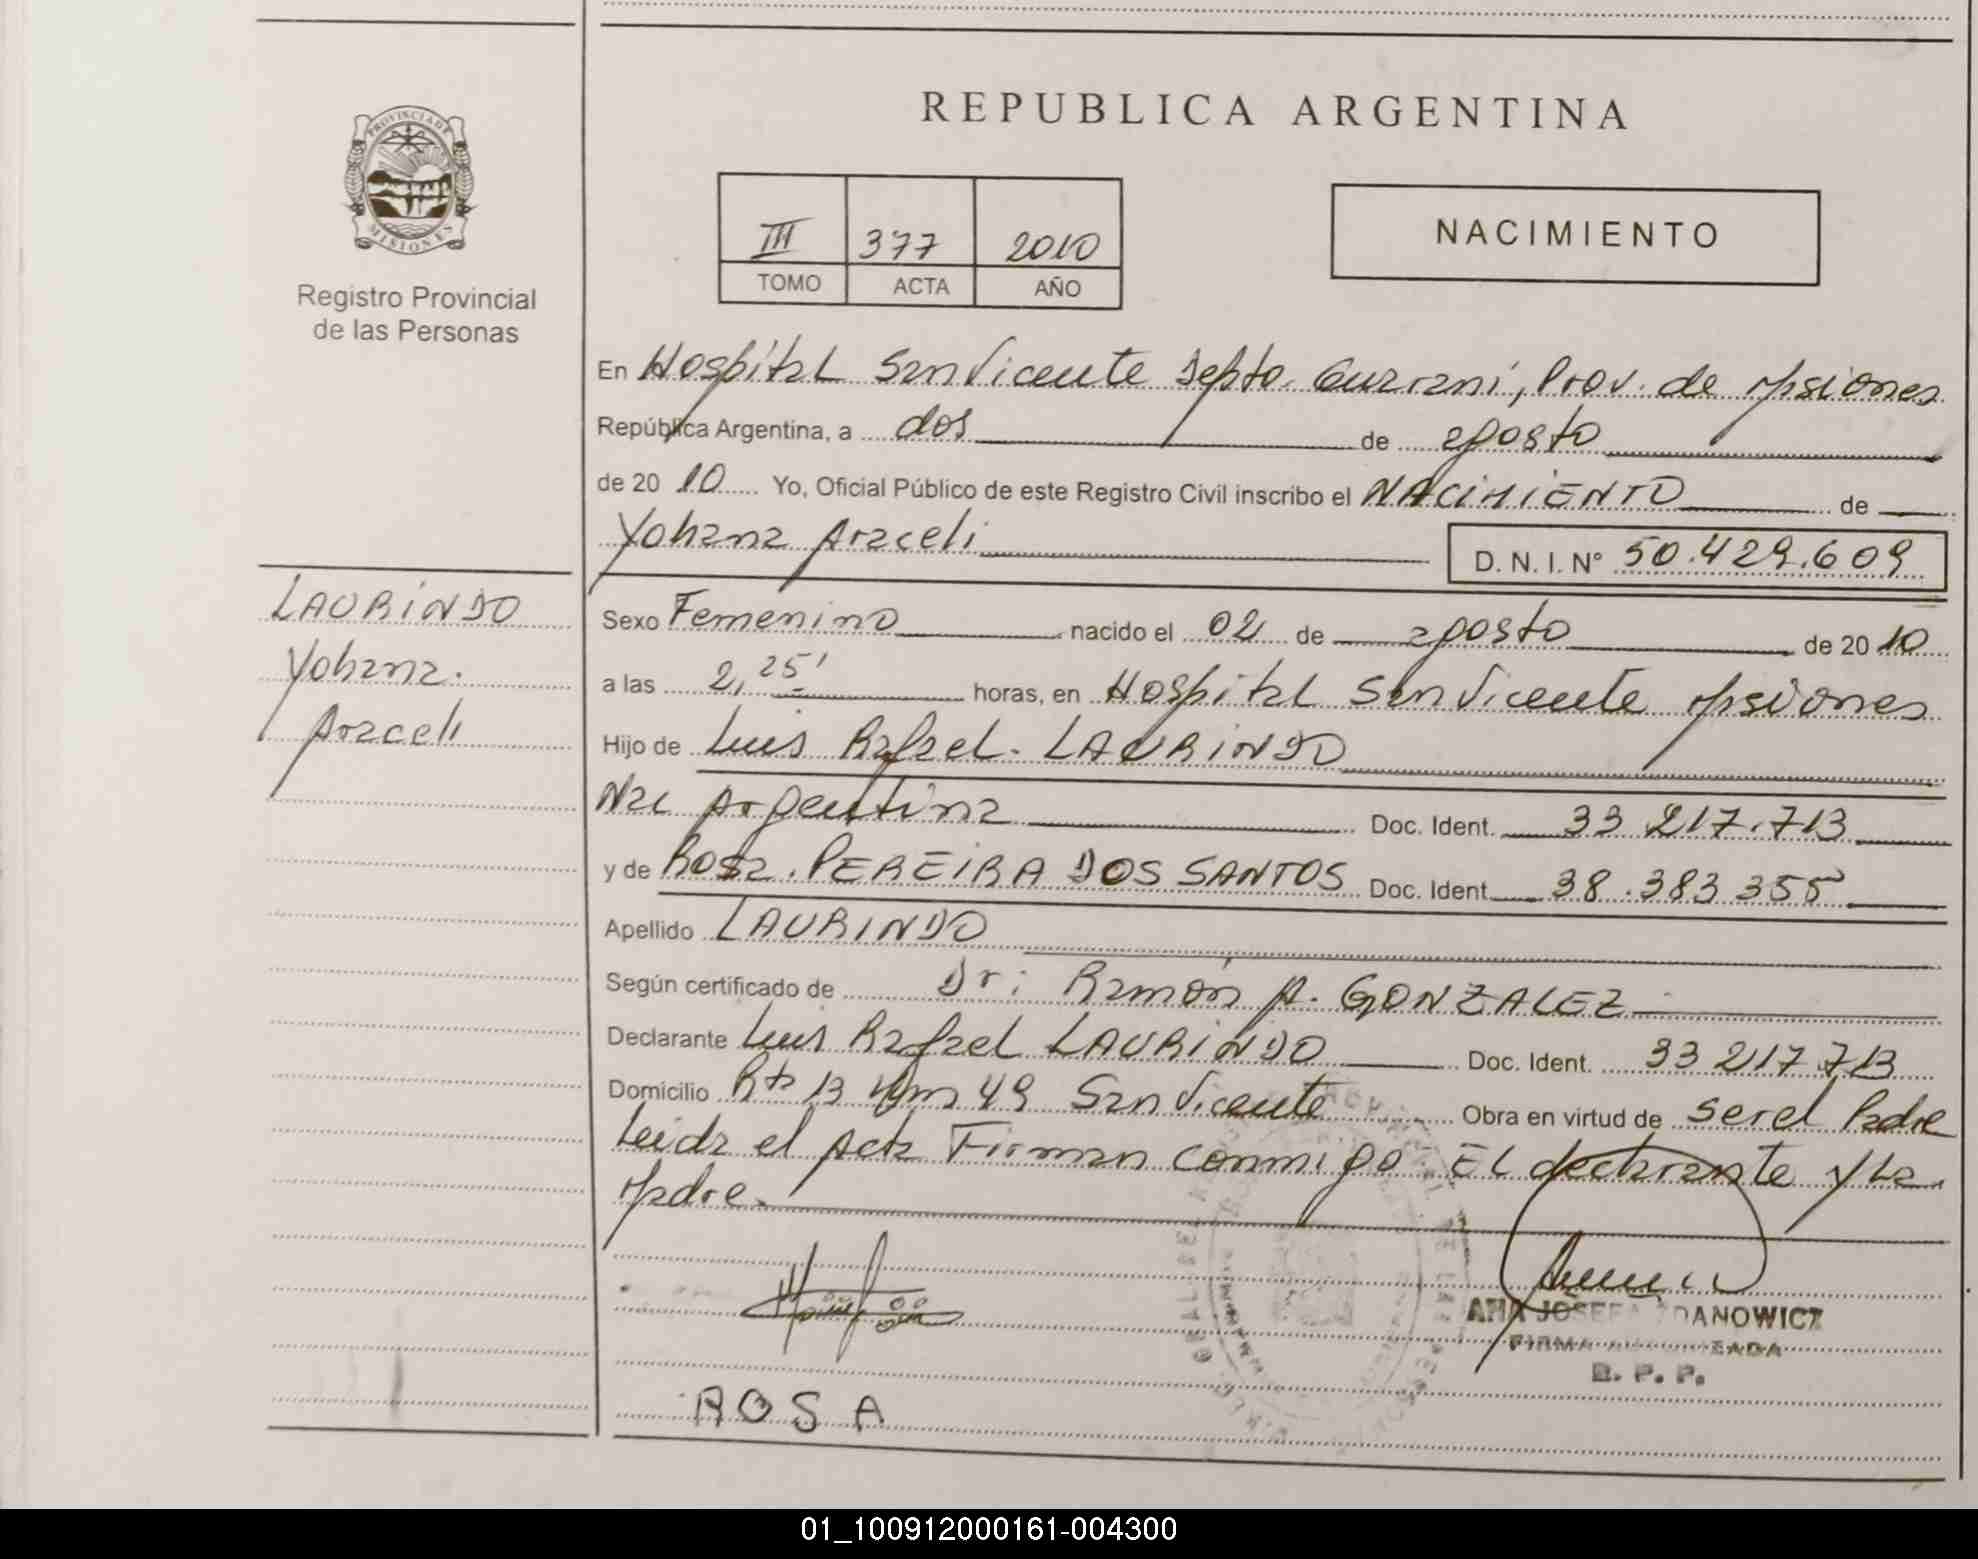 REPUBLICA ARGENTINA
PROVINCIA DE
MISIONES
Registro Provincial
de las Personas
III 377 2010
TOMO ACTA AÑO
NACIMIENTO
En Hospital San Vicente Depto. Guarani, Prov. de Misiones
República Argentina, a dos de agosto
de 20 10 Yo, Oficial Público de este Registro Civil inscribo el NACIMIENTO de
Yohana Araceli
D. N. I. N° 50.429.609
LAURINDO
Yohana.
Araceli
Sexo Femenino nacido el 02 de agosto de 20 10
a las 2,25' horas, en Hospital San Vicente Misiones
Hijo de Luis Rafael. LAURINDO
Nac Argentina Doc. Ident. 33 217.713
y de Rosa. PEREIRA DOS SANTOS Doc. Ident. 38.383 355
Apellido LAURINDO
Según certificado de Dr: Ramón A. GONZALEZ
Declarante Luis Rafael LAURINDO Doc. Ident. 33 217.713
Domicilio Rta 13 Km 49 San Vicente Obra en virtud de ser el Padre
Leida el Acta Firman conmigo EL declarante y La
Madre.
ANA JOSEFA ZDANOWICZ
FIRMA AUTORIZADA
R. P. P.
ROSA
01_100912000161-004300